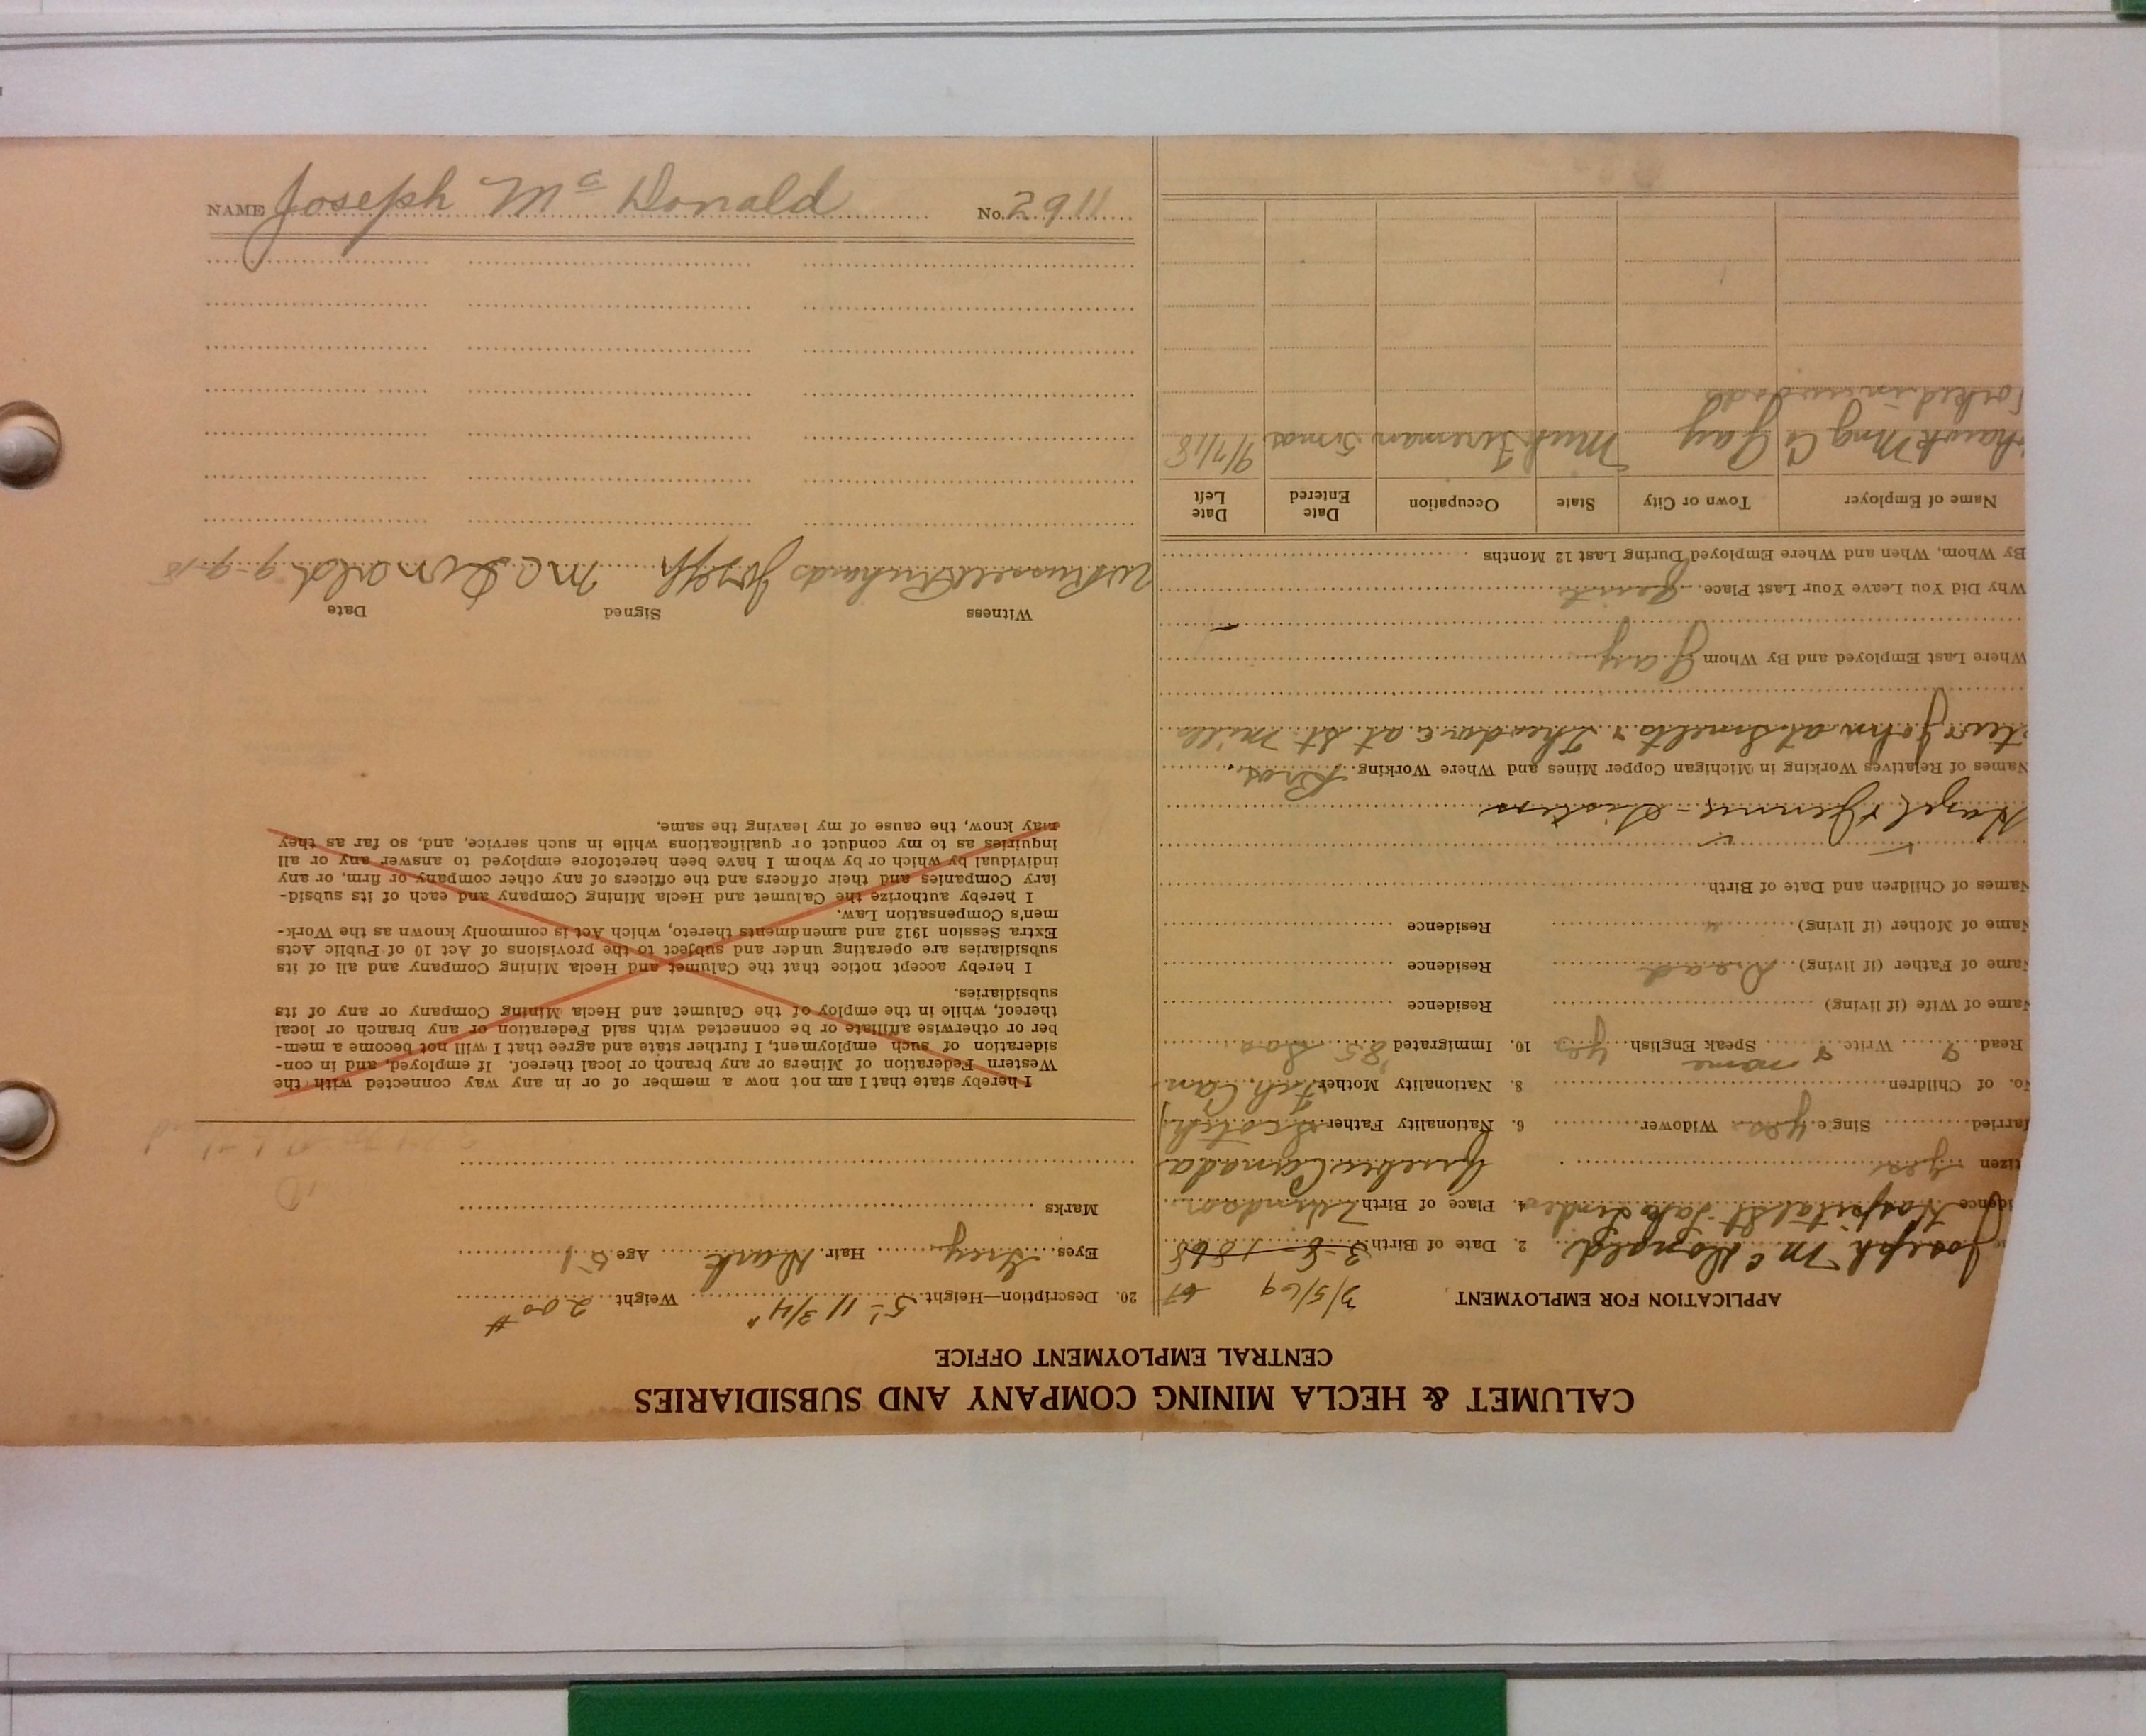 NAME Joseph Mc Donald No. 2911
CALUMET & HECLA MINING COMPANY AND SUBSIDIARIES
CENTRAL EMPLOYMENT OFFICE
APPLICATION FOR EMPLOYMENT
3/5/69
Joseph McDonald 2. Date of Birth 3-8-1868
idence Hospital St Lake Linden 4. Place of Birth Windsor
tizen yes Quebec Canada
arried Single yes Widower 6. Nationality Father Scotch
o. of Children none 8. Nationality Mother Fch Can
Read & Write Speak English yes 10. Immigrated 85 Soo
Name of Wife (if living) Residence
Name of Father (if living) Dead Residence
Name of Mother (if living) " Residence
Names of Children and Date of Birth
Hazel & Jennie - Sisters
Names of Relatives Working in Michigan Copper Mines and Where Working Bros.
John at Smelter Theodore at St. Mills
Where Last Employed and By Whom Gay
Why Did You Leave Your Last Place
By Whom, When and Where Employed During Last 12 Months
Name of Employer Town or City State Occupation Date Entered Date Left
hawk Mng Co Gay Mich Fireman 5 mos 9/7/18
orked in woods
20. Description—Height 5' 11 3/4" Weight 200#
Eyes Grey Hair Dark Age 51
Marks
I hereby state that I am not now a member of or in any way connected with the
Western Federation of Miners or any branch or local thereof. If employed, and in con-
sideration of such employment, I further state and agree that I will not become a mem-
ber or otherwise affiliate or be connected with said Federation or any branch or local
thereof, while in the employ of the Calumet and Hecla Mining Company or any of its
subsidiaries.
I hereby accept notice that the Calumet and Hecla Mining Company and all of its
subsidiaries are operating under and subject to the provisions of Act 10 of Public Acts
Extra Session 1912 and amendments thereto, which Act is commonly known as the Work-
men's Compensation Law.
I hereby authorize the Calumet and Hecla Mining Company and each of its subsid-
iary Companies and their officers and the officers of any other company or firm, or any
individual by which or by whom I have been heretofore employed to answer any or all
inquiries as to my conduct or qualifications while in such service, and, so far as they
may know, the cause of my leaving the same.
Witness Signed Date
Russell Richards Joseph McDonald 9-9-18